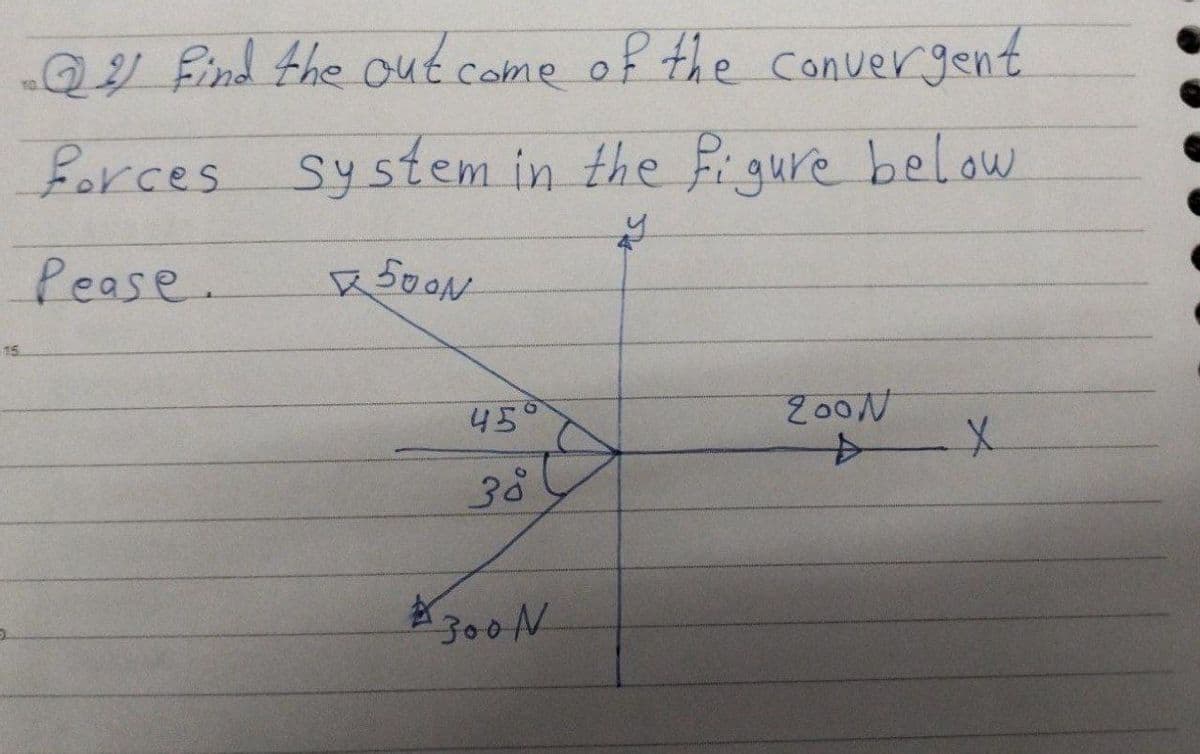 Q2/ Find the out come of the convergent
forces system in the figure below
Pease.
y
500N
15
45°
200N
X
30°
300N